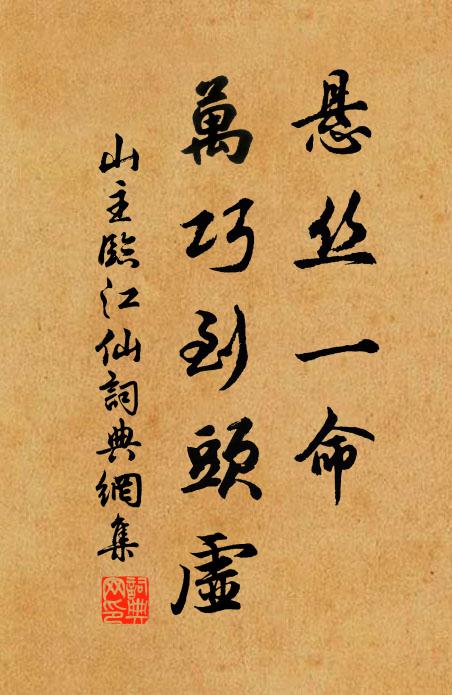 悬丝一命
萬巧到頭虛
山主臨江仙詞典網集
詞典網印